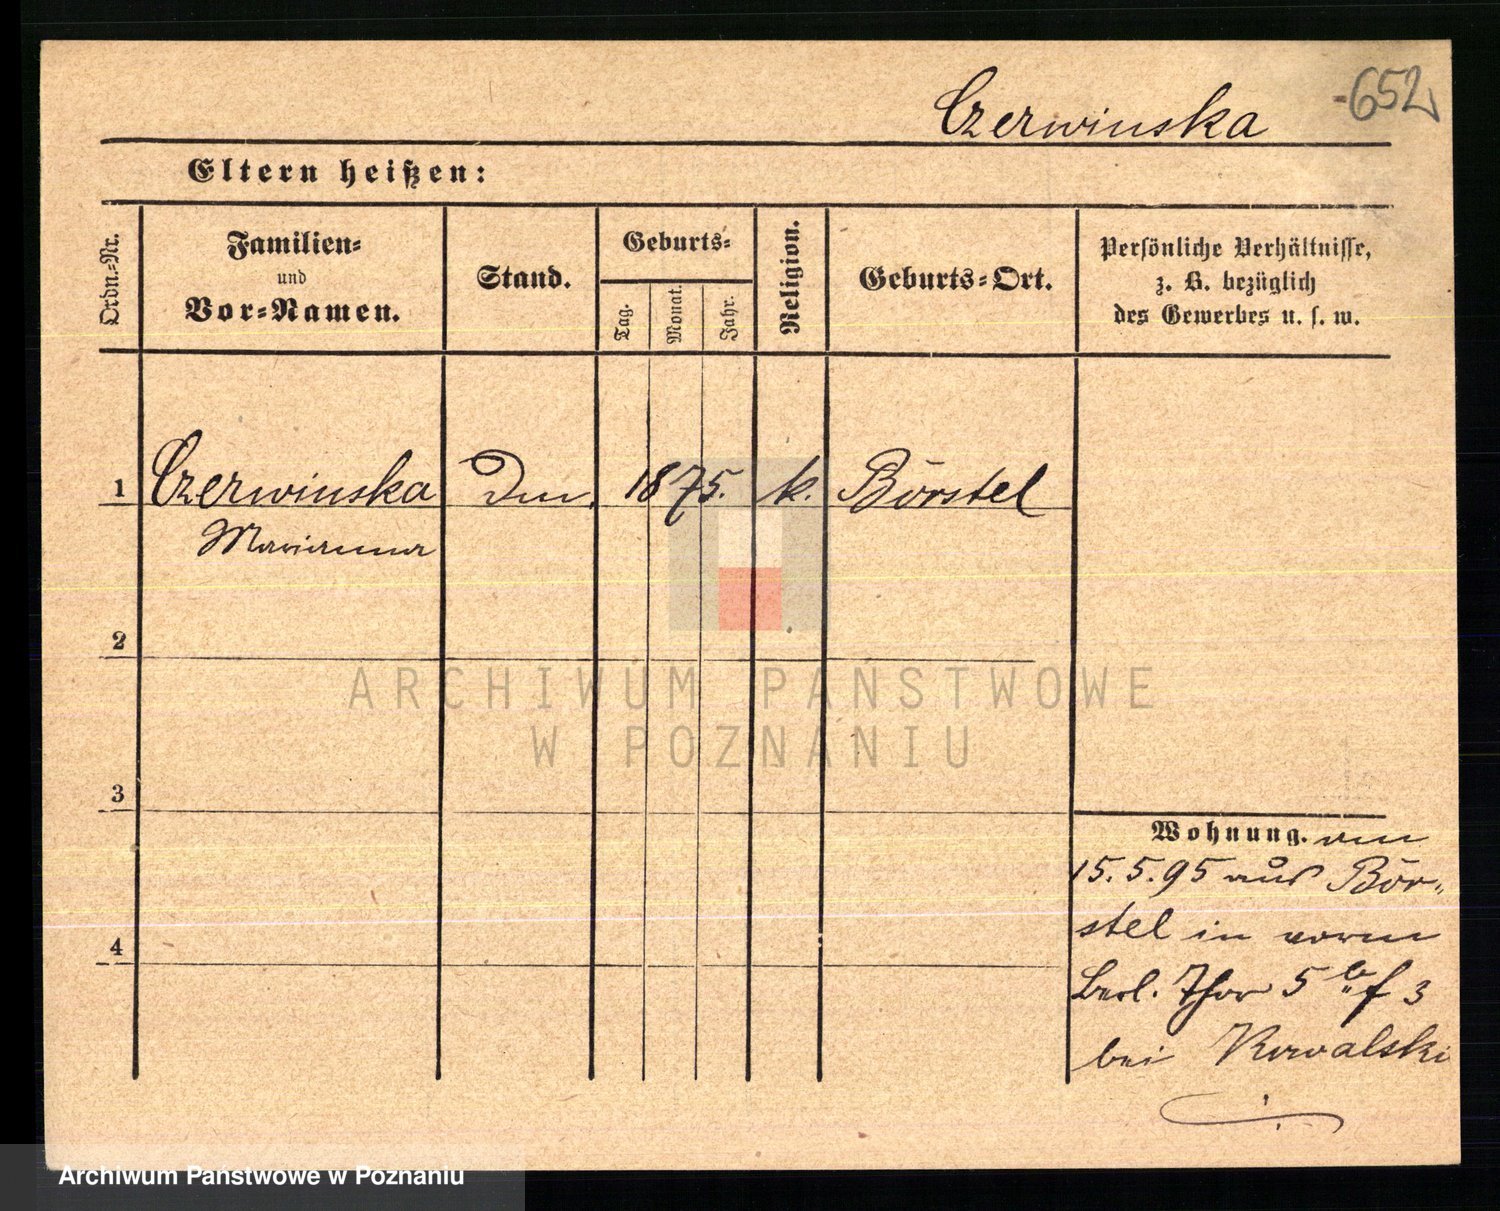 Czerwinska
652
Eltern heißen:
Ordn.-Nr.
Familien-
und
Vor-Namen.
Stand.
Geburts-
Tag.
Monat.
Jahr.
Religion.
Geburts-Ort.
Persönliche Verhältnisse,
z. B. bezüglich
des Gewerbes u. s. w.
1 Czerwinska 1875. k. Börstel
Marianna
2
3
4
Wohnung. am
15.5.95 aus Bör-
stel in vorm
Berl. Thor 5 b f 3
bei Kowalski
ARCHIWUM PAŃSTWOWE
W POZNANIU
Archiwum Państwowe w Poznaniu